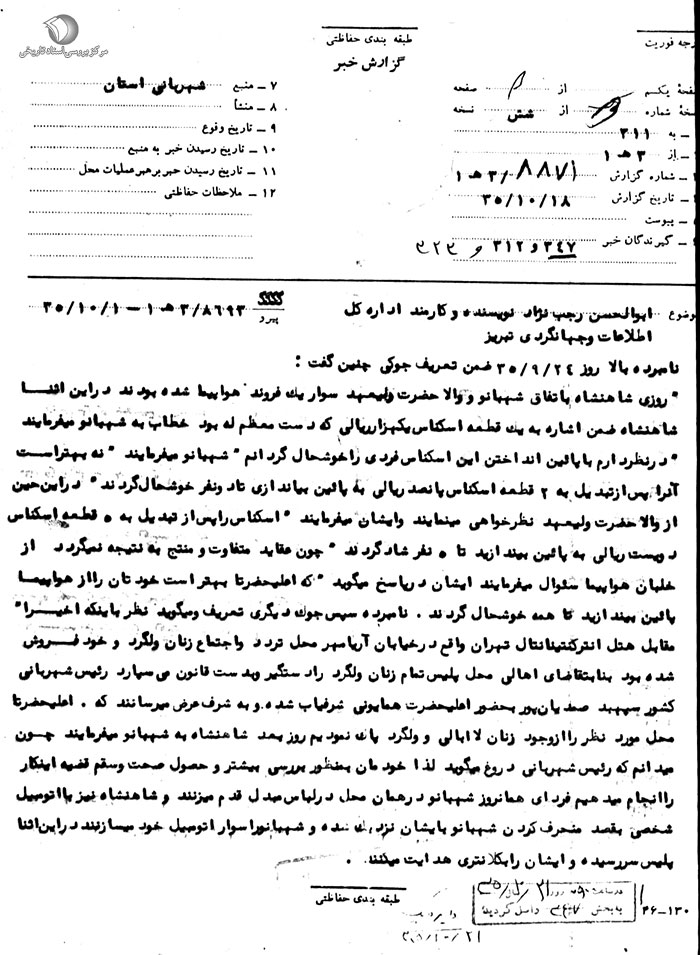 مرکز بررسی اسناد تاریخی
طبقه بندی حفاظتی
گزارش خبر
رجه فوریت
صفحهٔ یکم از صفحه
نسخهٔ شماره از شش نسخه
ـ به ۳۱۱
ـ از ۳ هـ ۱
ـ شماره گزارش ۸۸۷۱/۳ هـ ۱
ـ تاریخ گزارش ۳۵/۱۰/۱۸
ـ پیوست
ـ گیرندگان خبر ۳۴۷ و ۳۱۲ و ۳۲۳
۷ ـ منبع شهربانی استان
۸ ـ منشأ
۹ ـ تاریخ وقوع
۱۰ ـ تاریخ رسیدن خبر به منبع
۱۱ ـ تاریخ رسیدن خبر برهبر عملیات محل
۱۲ ـ ملاحظات حفاظتی
موضوع ابوالحسن رجب نژاد نویسنده و کارمند اداره کل
اطلاعات وجهانگردی تبریز
پیرو ۳/۸۶۹۳ هـ ۱ ـ ۳۵/۱۰/۱
نامبرده بالا روز ۳۵/۹/۲۴ ضمن تعریف جوکی چنین گفت :
" روزی شاهنشاه باتفاق شهبانو و والا حضرت ولیعهد سوار یک فروند هواپیما شده بودند دراین اثنا
شاهنشاه ضمن اشاره به یک قطعه اسکناس یکهزارریالی که دست معظم له بود خطاب به شهبانو میفرمایند
" درنظردارم با پائین انداختن این اسکناس فردی را خوشحال گردانم " شهبانو میفرمایند " نه بهتراست
آنرا پس ازتبدیل به ۲ قطعه اسکناس پانصد ریالی به پائین بیاندازی تا دونفر خوشحال گردند " دراین حین
از والا حضرت ولیعهد نظرخواهی مینمایند وایشان میفرمایند " اسکناس را پس از تبدیل به ۵ قطعه اسکناس
دویست ریالی به پائین بیندازید تا ۵ نفر شاد گردند " چون عقاید متفاوت و منتج به نتیجه نمیگردد از
خلبان هواپیما سئوال میفرمایند ایشان درپاسخ میگوید " که اعلیحضرتا بهتر است خودتان را از هواپیما
پائین بیندازید تا همه خوشحال گردند . نامبرده سپس جوک دیگری تعریف ومیگوید نظر باینکه اخیرا"
مقابل هتل انترکنتینانتال تهران واقع درخیابان آریامهر محل تردد واجتماع زنان ولگرد و خود فروش
شده بود بنابتقاضای اهالی محل پلیس تمام زنان ولگرد را دستگیر وبدست قانون می سپارد رئیس شهربانی
کشور سپهبد صمدیان پور بحضور اعلیحضرت همایونی شرفیاب شده و به شرف عرض میرسانند که . اعلیحضرتا
محل مورد نظر را ازوجود زنان لاابالی و ولگرد پاک نمودیم روز بعد شاهنشاه به شهبانو میفرمایند چون
میدانم که رئیس شهربانی دروغ میگوید لذا خودمان بمنظور بررسی بیشتر و حصول صحت وسقم قضیه اینکار
را انجام میدهیم فردای همانروز شهبانو درهمان محل درلباس مبدل قدم میزنند و شاهنشاه نیز بااتومبیل
شخصی بقصد منحرف کردن شهبانو بایشان نزدیک شده و شهبانورا سوار اتومبیل خود میسازنند دراین اثنا
پلیس سررسیده و ایشان را بکلانتری هدایت میکنند .
طبقه بندی حفاظتی
درساعت روز
به بخش واصل گردید
۴۶-۱۳۰